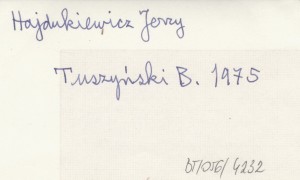 Hajdukiewicz Jerzy
Tuszyński B. 1975
DT/OTG/4232